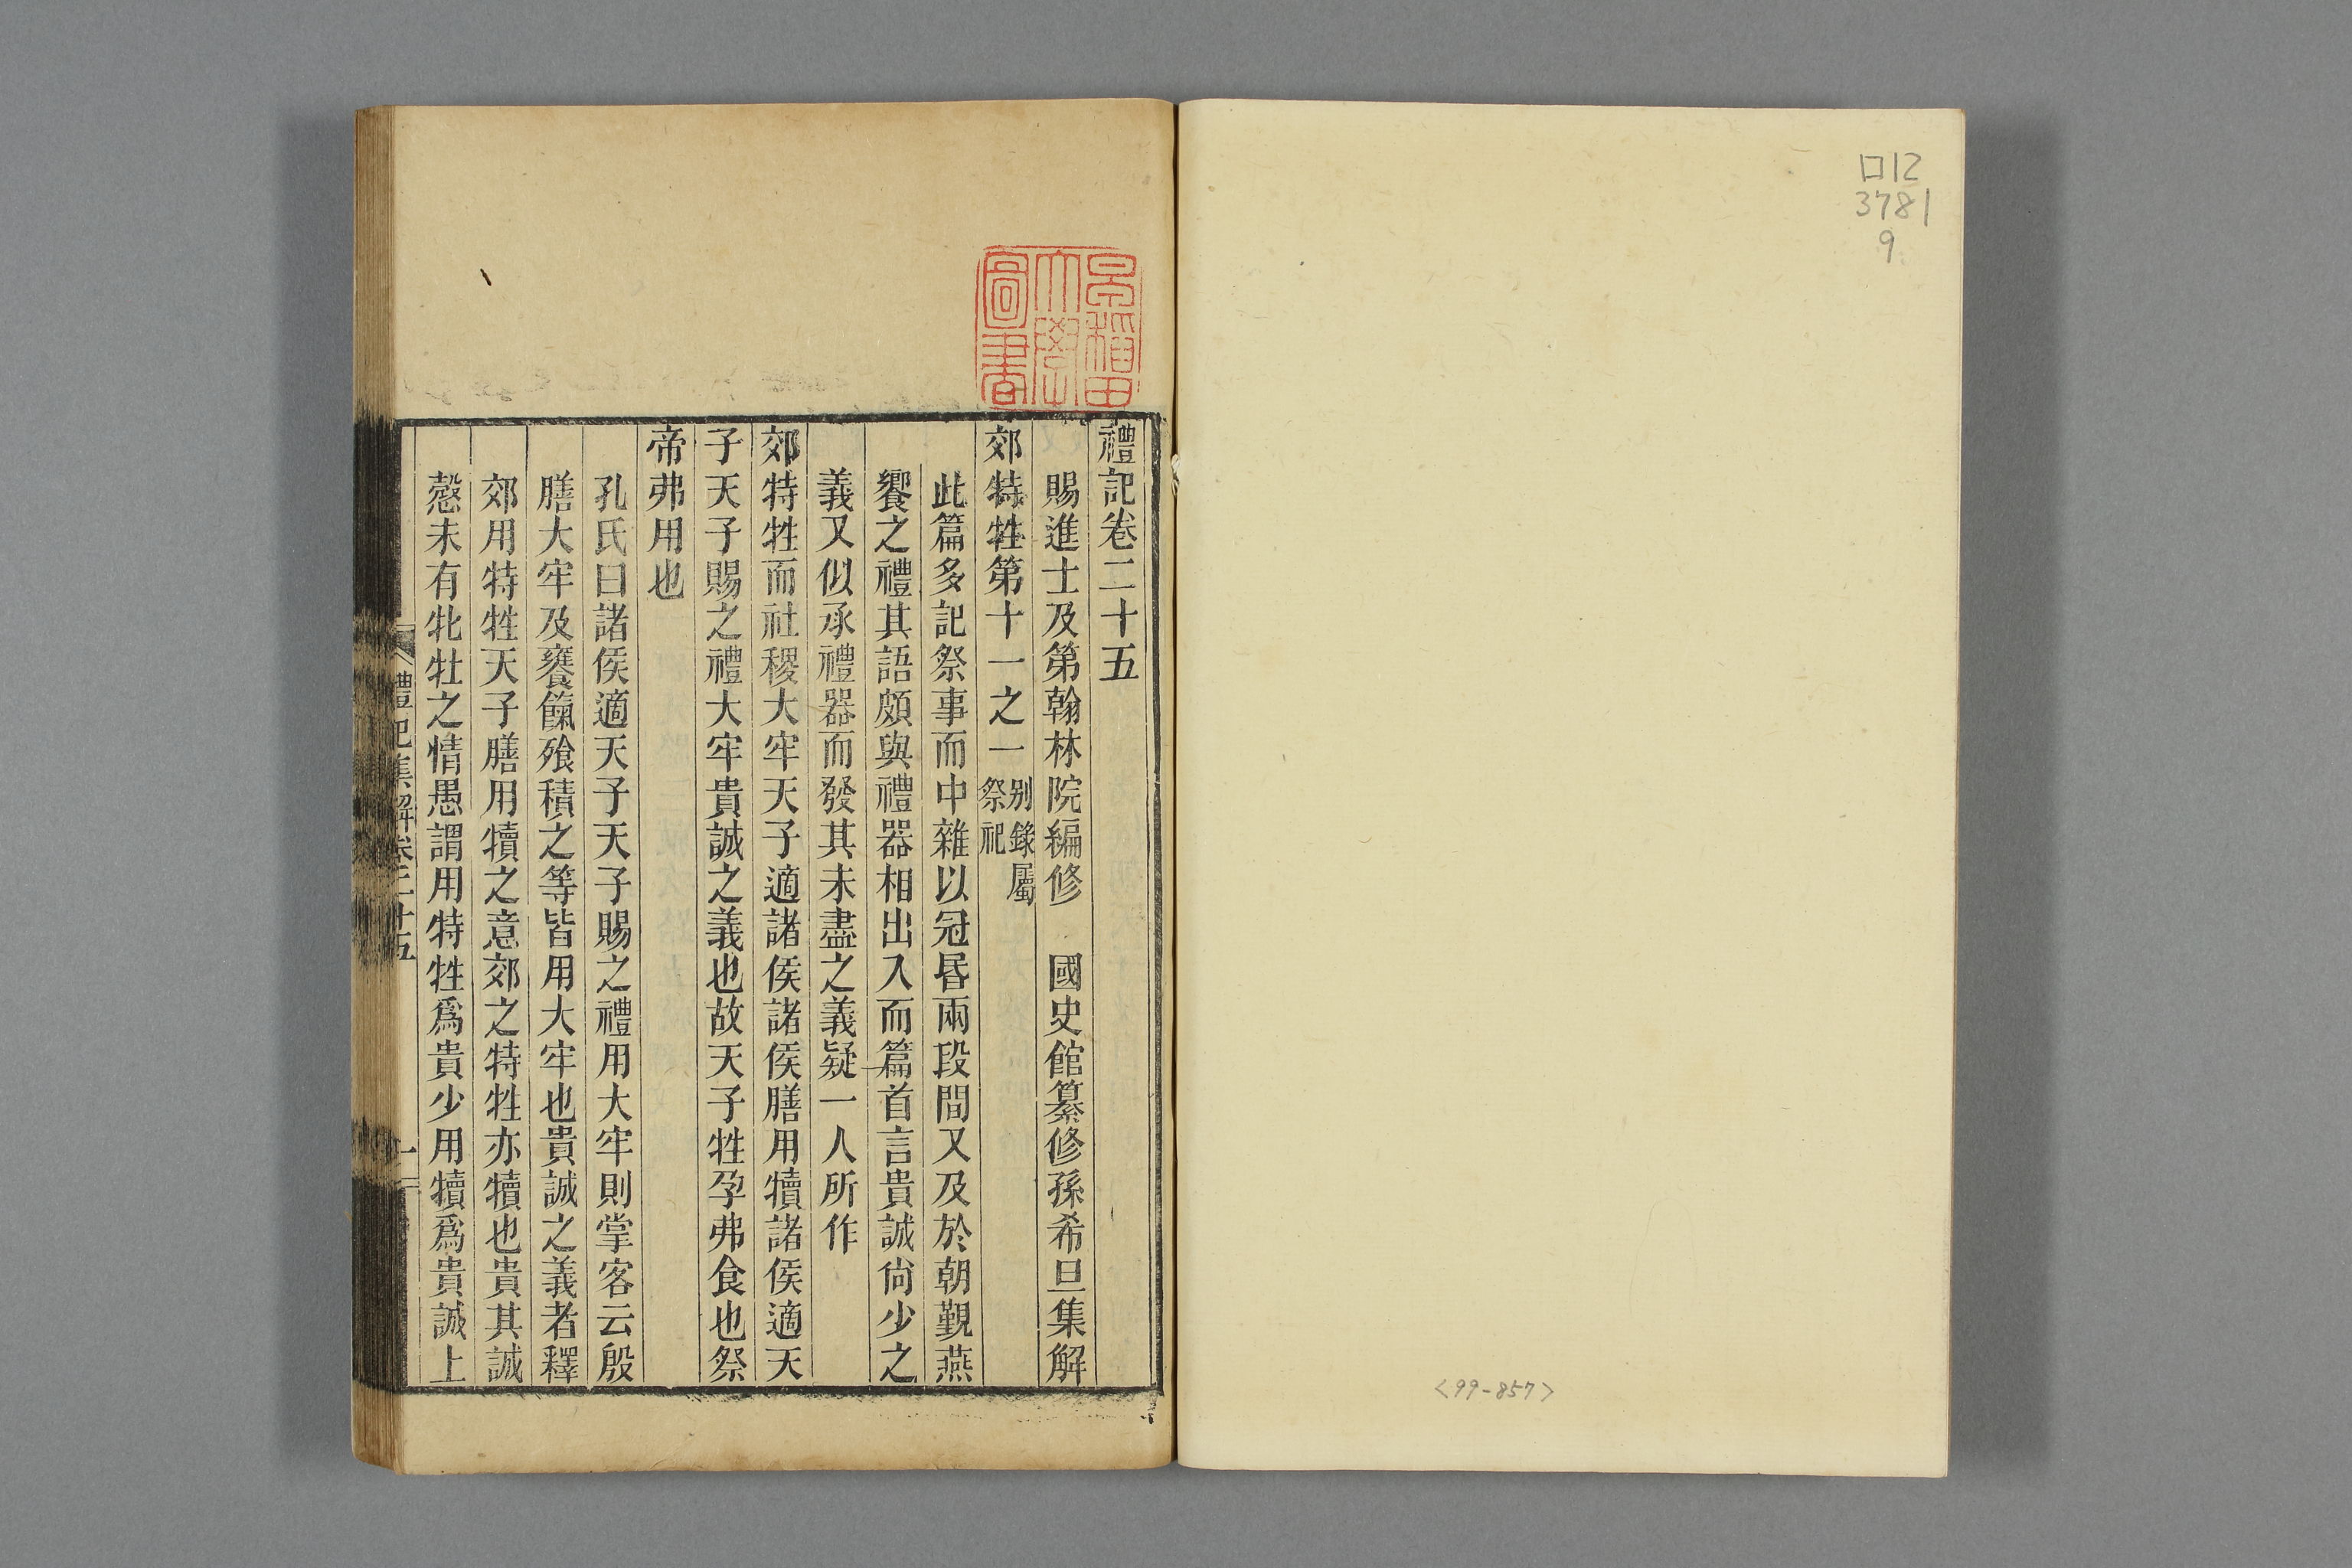 口12
3781
9
<99-857>
早稲田
大學
圖書
禮記卷二十五
賜進士及第翰林院編修 國史館纂修孫希旦集解
郊特牲第十一之一 别錄屬祭祀
此篇多記祭事而中雜以冠昏兩段間又及於朝覲燕
饗之禮其語頗與禮器相出入而篇首言貴誠尙少之
義又似承禮器而發其未盡之義疑一人所作
郊特牲而社稷大牢天子適諸侯諸侯膳用犢諸侯適天
子天子賜之禮大牢貴誠之義也故天子牲孕弗食也祭
帝弗用也
孔氏曰諸侯適天子天子賜之禮用大牢則掌客云殷
膳大牢及饔餼飱積之等皆用大牢也貴誠之義者釋
郊用特牲天子膳用犢之意郊之特牲亦犢也貴其誠
慤未有牝牡之情愚謂用特牲爲貴少用犢爲貴誠上
禮記集解卷二十五 一